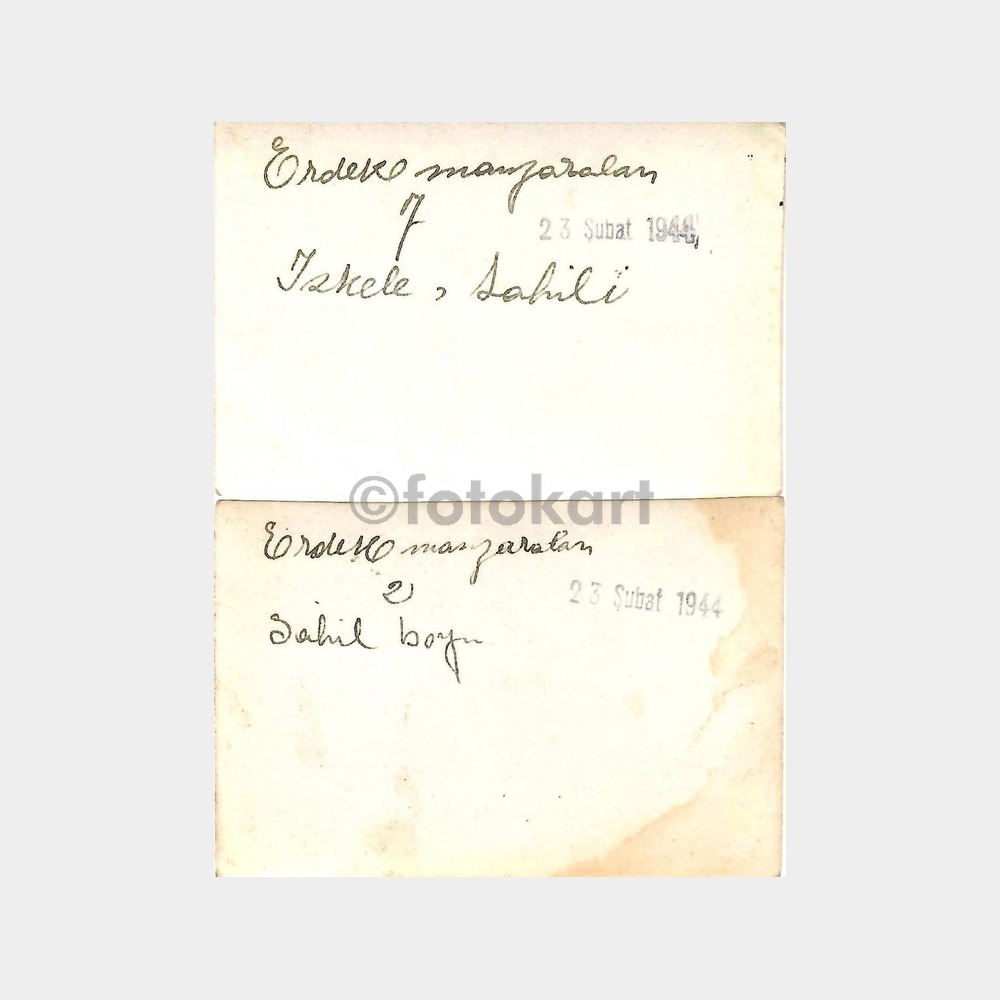 Erdek manzaraları
7
23 Şubat 1944
İskele, Sahili
©fotokart
Erdek manzaraları
2
23 Şubat 1944
Sahil boyu